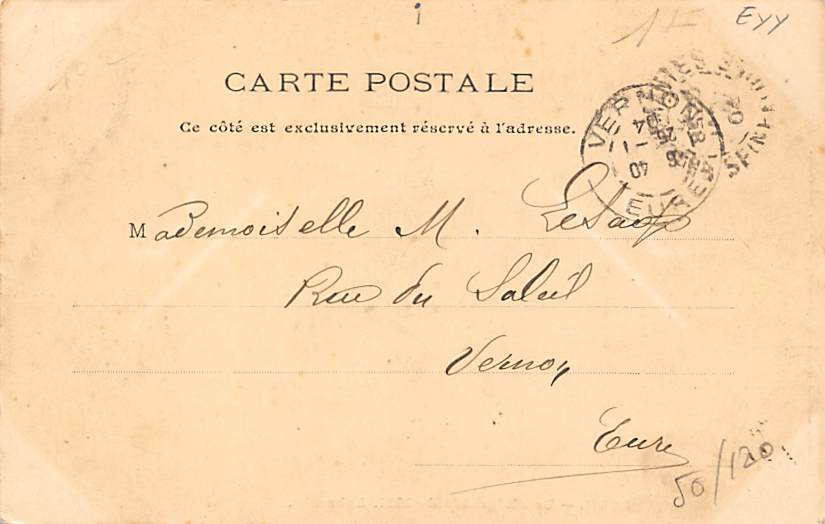 1 E
Eyy
CARTE POSTALE
Ce côté est exclusivement réservé à l'adresse.
VERNON
EURE
40
Mademoiselle M. Lesage
Rue du Soleil
Vernon
Eure
50/120